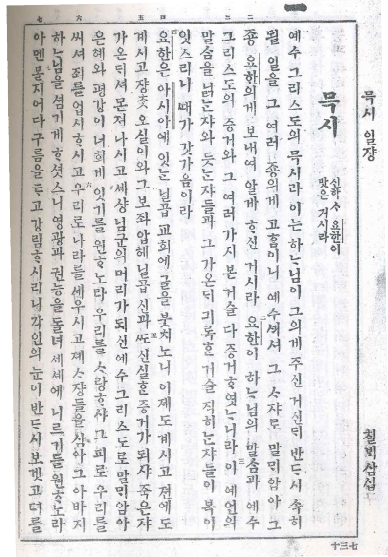 묵시 일쟝
칠ᄇᆡᆨ삼십
묵시
신학ᄉᆞ 요한이
맛은 거시라
예수 그리스도의 묵시라 이는 하ᄂᆞ님이 그의게 주신 거신ᄃᆡ 반ᄃᆞ시 속히
될 일을 그 여러 죵의게 고ᄒᆞᆷ이니 그 ᄉᆞ쟈로 말ᄆᆡ암아 그
죵 요한의게 보내여 알게 ᄒᆞ신 거시라 요한이 하ᄂᆞ님의 말ᄉᆞᆷ과 예수
그리스도의 증거와 그 여러 가지 본 거슬 다 증거ᄒᆞ엿ᄂᆞ니라 이 예언의
말ᄉᆞᆷ을 닑ᄂᆞᆫ쟈와 듯ᄂᆞᆫ쟈들과 그 가온ᄃᆡ 긔록ᄒᆞᆫ 거슬 직히ᄂᆞᆫ쟈들이 복이
잇스리니 ᄯᅢ가 갓가옴이라
요한은 아시아에 잇ᄂᆞᆫ 닐곱 교회에 글을 붓쳐노니 이제도 계시고 젼에도
계시고 쟝ᄎᆞᆺ 오실 이와 그 보좌 압헤 닐곱 신과 ᄯᅩ 신실ᄒᆞᆫ 증거가 되샤 죽은쟈
가온ᄃᆡ셔 몬져 나시고 세샹 님군의 머리가 되신 예수 그리스도로 말ᄆᆡ암아
은혜와 평강이 너희게 잇기를 원ᄒᆞ노라 우리를 ᄉᆞ랑ᄒᆞ샤 그 피로 우리를
씨셔 죄를 업시 ᄒᆞ시고 우리로 나라를 세우시고 졔ᄉᆞ쟝들을 삼아 그 아바지
하ᄂᆞ님을 셤기게 ᄒᆞ셧스니 영광과 권능을 돌녀 셰셰에 니르기를 원ᄒᆞ노라
아멘 볼지어다 구름을 ᄐᆞ고 강림ᄒᆞ시리니 각인의 눈이 반ᄃᆞ시 보겟고 뎌를
二 三 四 五 六 七
十三七